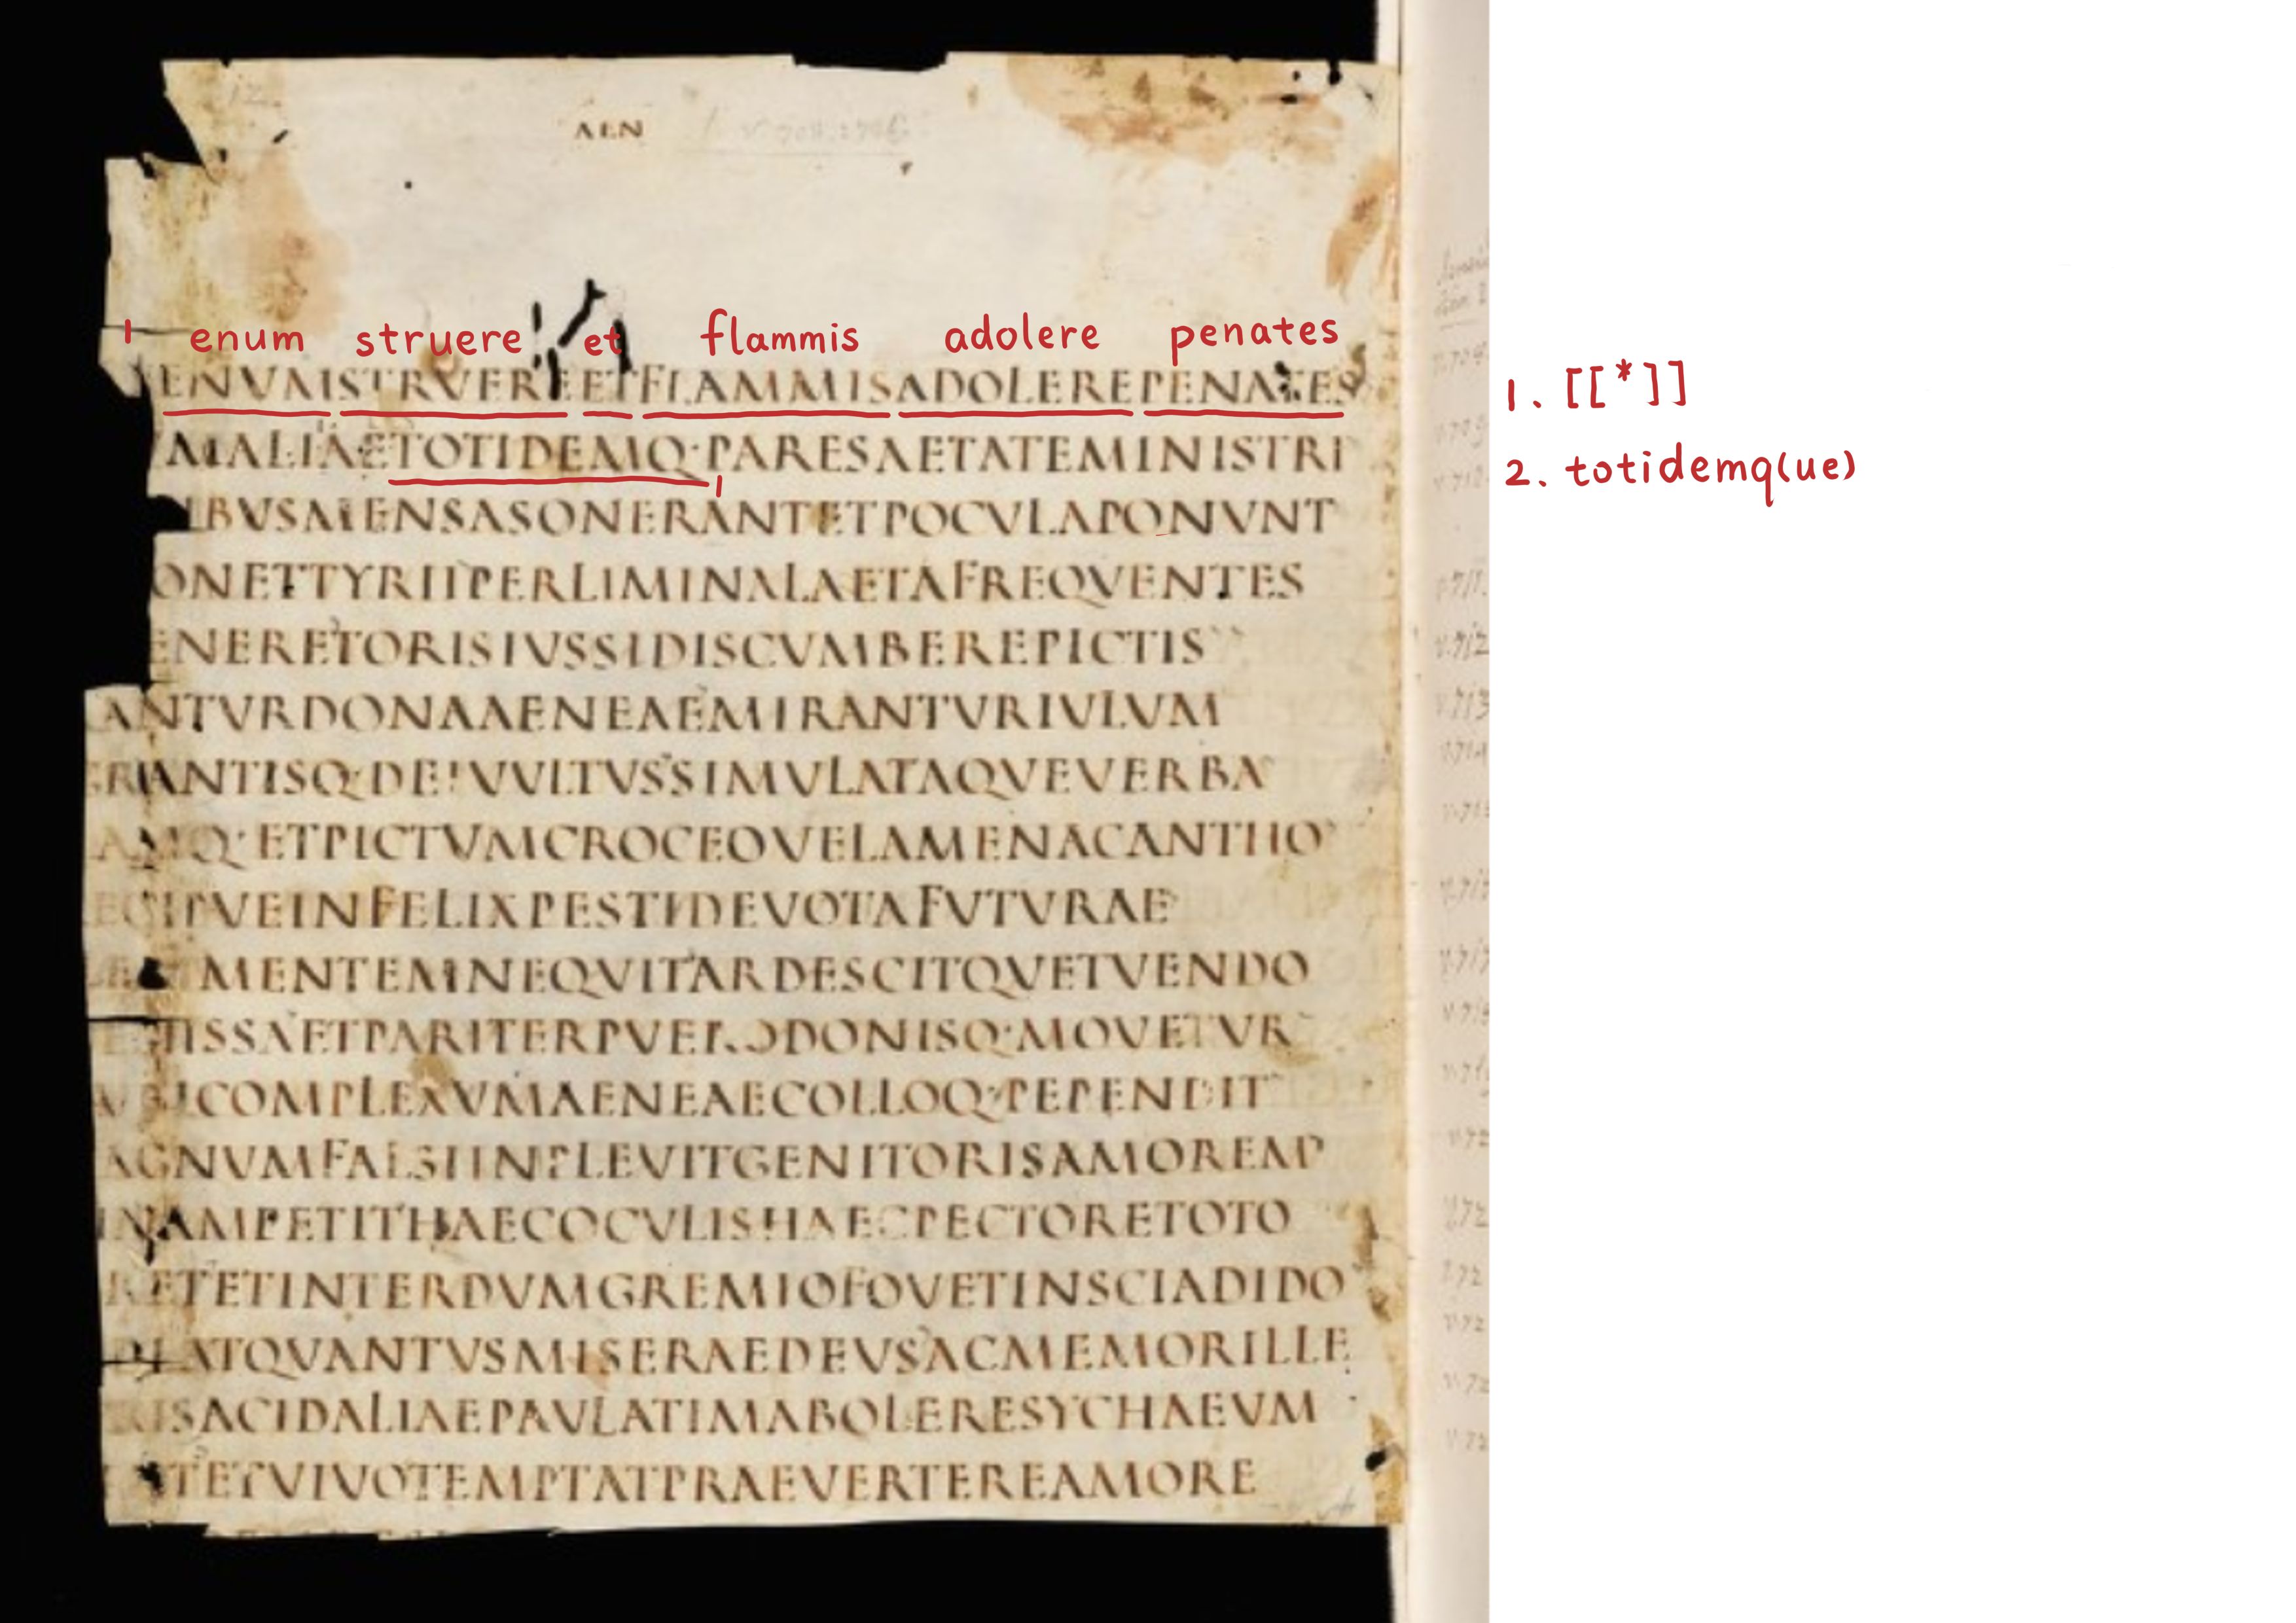 AEN
1 enum struere et flammis adolere penates
ENVMSTRVEREETFLAMMISADOLEREPENATES
MALIAETOTIDEMQ·PARESAETATEMINISTRI
IBVSMENSASONERANTETPOCVLAPONVNT
ONETTYRIIPERLIMINALAETAFREQVENTES
ENERETORISIVSSIDISCVMBEREPICTIS
ANTVRDONAAENEAEMIRANTVRIVLVM
GRANTISQ·DEIVVLTVSSIMVLATAQVEVERBA
AMQ·ETPICTVMCROCEOVELAMENACANTHO
ECIPVEINFELIXPESTIDEVOTAFVTVRAE
MENTEMNEQVITARDESCITQVETVENDO
ISSAETPARITERPVERODONISQ·MOVETVR
VBICOMPLEXVMAENEAECOLLOQ·PEPENDIT
AGNVMFALSIINPLEVITGENITORISAMOREM
INAMPETITHAECOCVLISHAECPECTORETOTO
RETETINTERDVMGREMIOFOVETINSCIADIDO
ATQVANTVSMISERAEDEVSACMEMORILLE
ISACIDALIAEPAVLATIMABOLERESYCHAEVM
TETVIVOTEMPTATPRAEVERTEREAMORE
1. [[*]]
2. totidemq(ue)